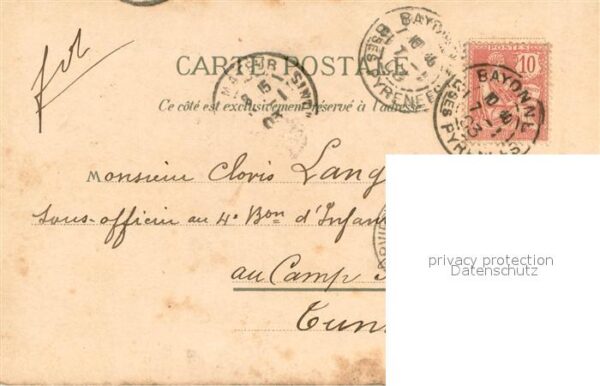 CARTE POSTALE
Ce côté est exclusivement réservé à l'adresse
BAYONNE
7-1
03
BSES PYRENEES
POSTES
10
BAYONNE
10 40
7-1
03
BSES PYRENEES
15
03
Monsieur Cloris Lang
Sous-officier au 4e Bon d'Infan
au Camp
Tun
privacy protection
Datenschutz